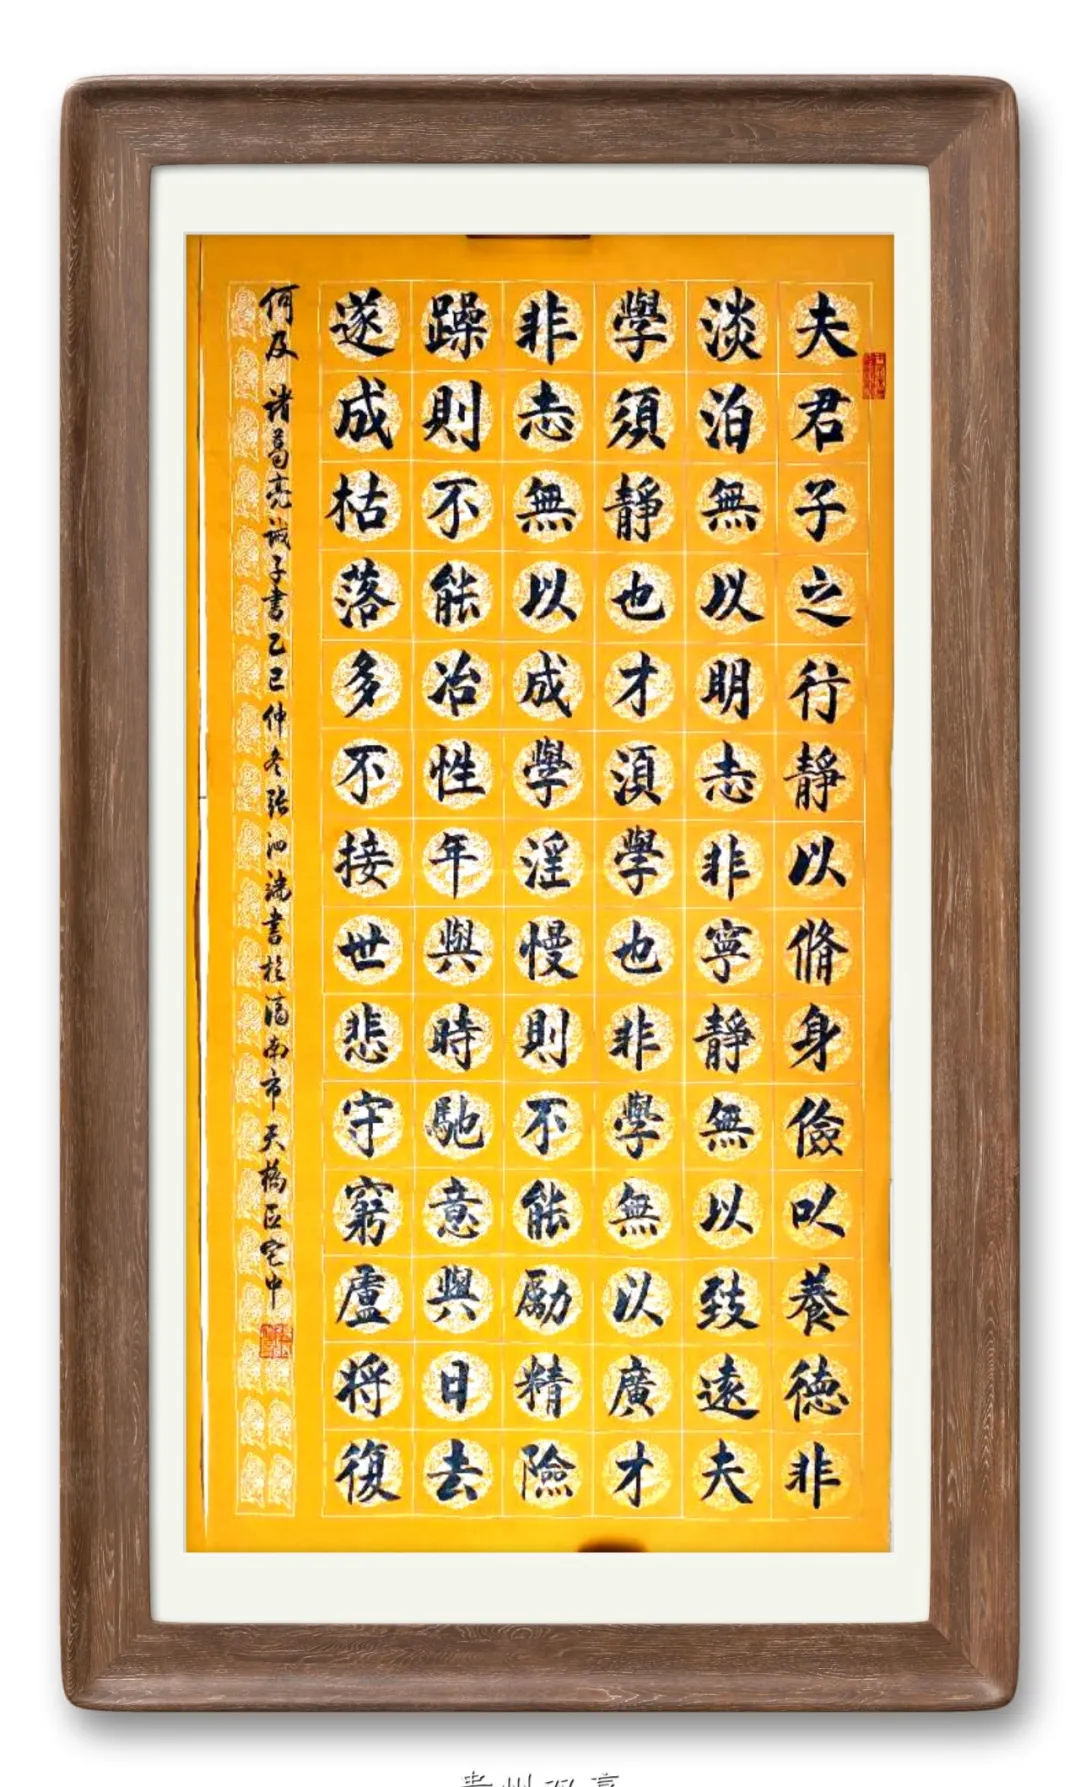 夫君子之行靜以脩身儉以養德非
淡泊無以明志非寧靜無以致遠夫
學須靜也才須學也非學無以廣才
非志無以成學淫慢則不能勵精險
躁則不能冶性年與時馳意與日去
遂成枯落多不接世悲守窮廬將復
何及 諸葛亮誡子書乙巳仲冬張泗端書於濟南市天橋區